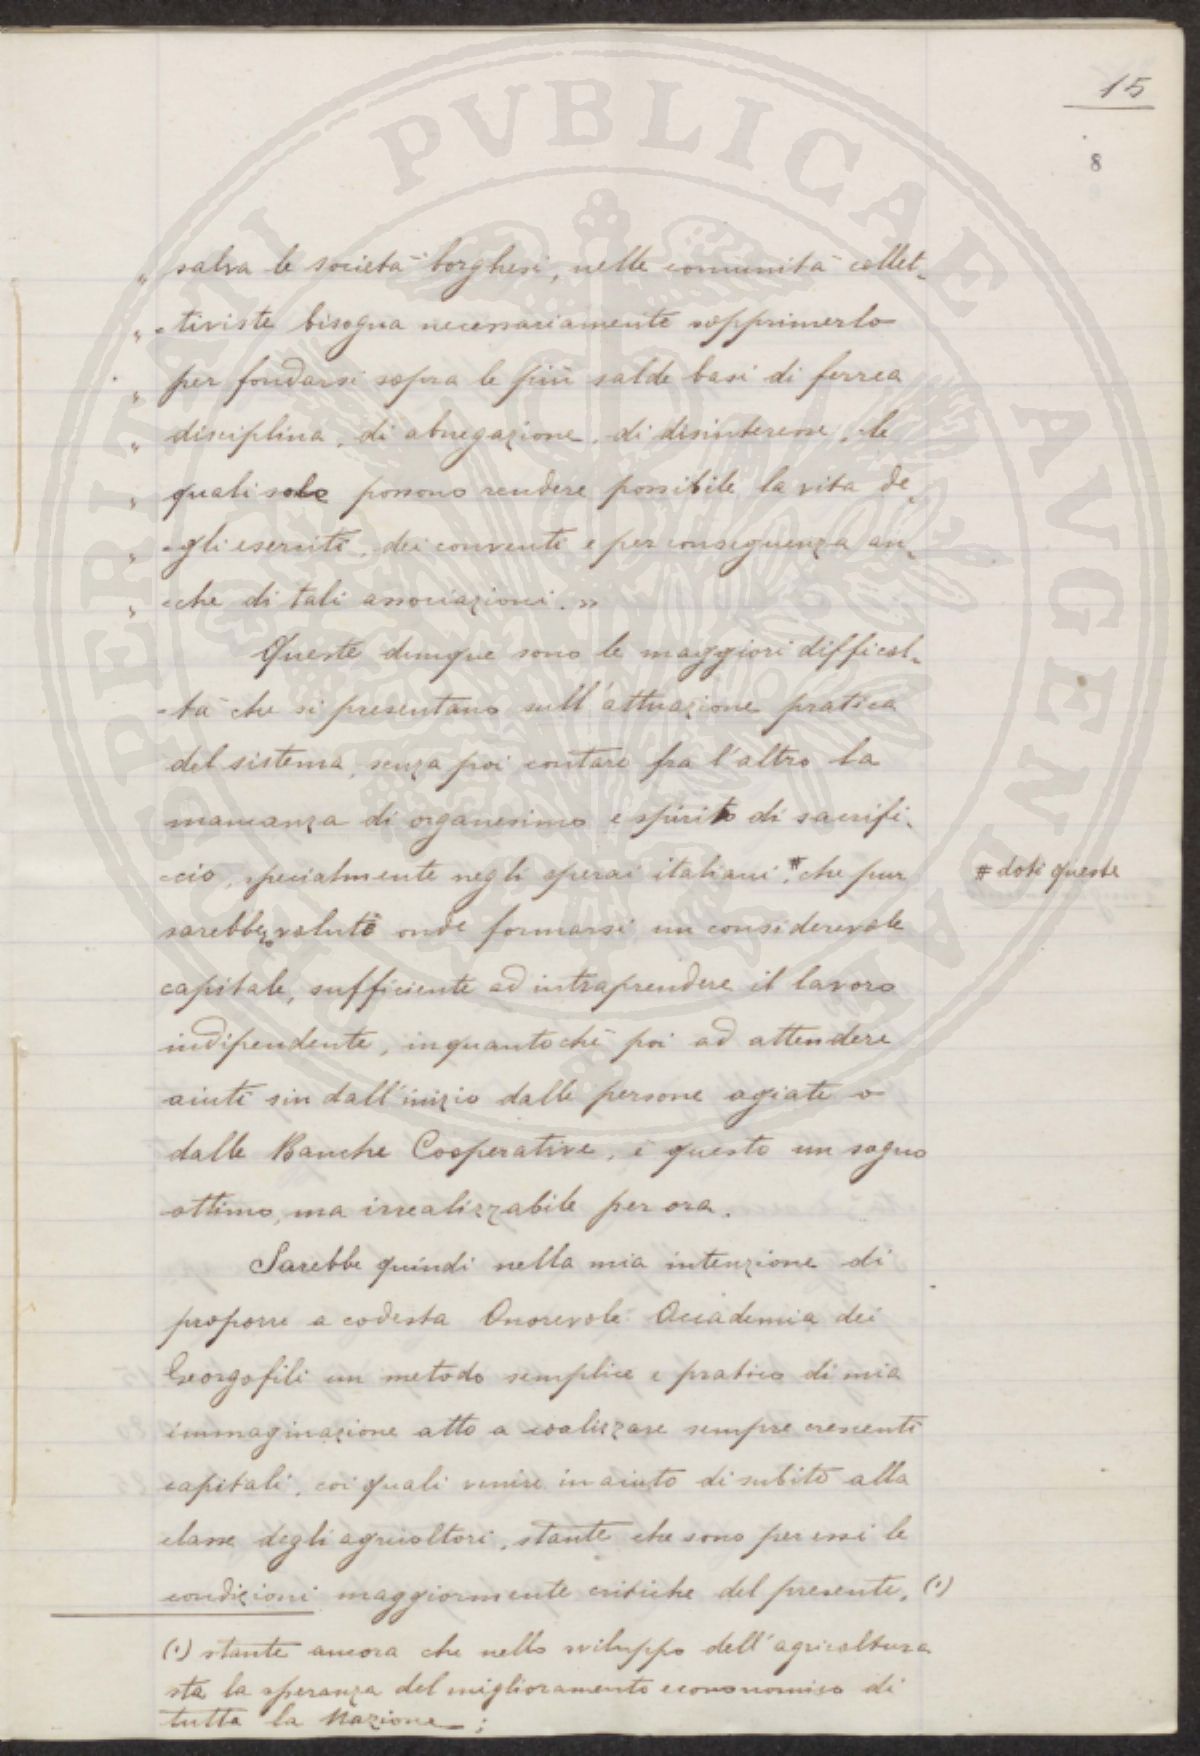 15
8
„ salva le società borghesi, nelle comunità collet-
„ -tiviste bisogna necessariamente sopprimerlo
„ per fondarsi sopra le più salde basi di ferrea
„ disciplina, di abnegazione, di disinteresse, le
„ quali solo possono rendere possibile la vita de-
„ -gli eserciti, dei conventi e per conseguenza an-
„ -che di tali associazioni. »
Queste dunque sono le maggiori difficol-
-tà che si presentano sull'attuazione pratica
del sistema, senza poi contare fra l'altro la
mancanza di organesimo e spirito di sacrifi-
-cio, specialmente negli operai italiani, # che pur
# doti queste
sarebbero volute onde formarsi un considerevole
capitale, sufficiente ad intraprendere il lavoro
indipendente, inquantoché poi ad attendere
aiuti sin dall'inizio dalle persone agiate o
dalle Banche Cooperative, è questo un sogno
ottimo, ma irrealizzabile per ora.
Sarebbe quindi nella mia intenzione di
proporre a codesta Onorevole Accademia dei
Georgofili un metodo semplice e pratico di mia
immaginazione atto a coalizzare sempre crescenti
capitali, coi quali venire in aiuto di subito alla
classe degli agricoltori, stante che sono per essi le
condizioni maggiormente critiche del presente, (1)
(1) stante ancora che nello sviluppo dell'agricoltura
sta la speranza del miglioramento econonomico di
tutta la Nazione;
PROSPERITATI PVBLICAE AVGENDAE